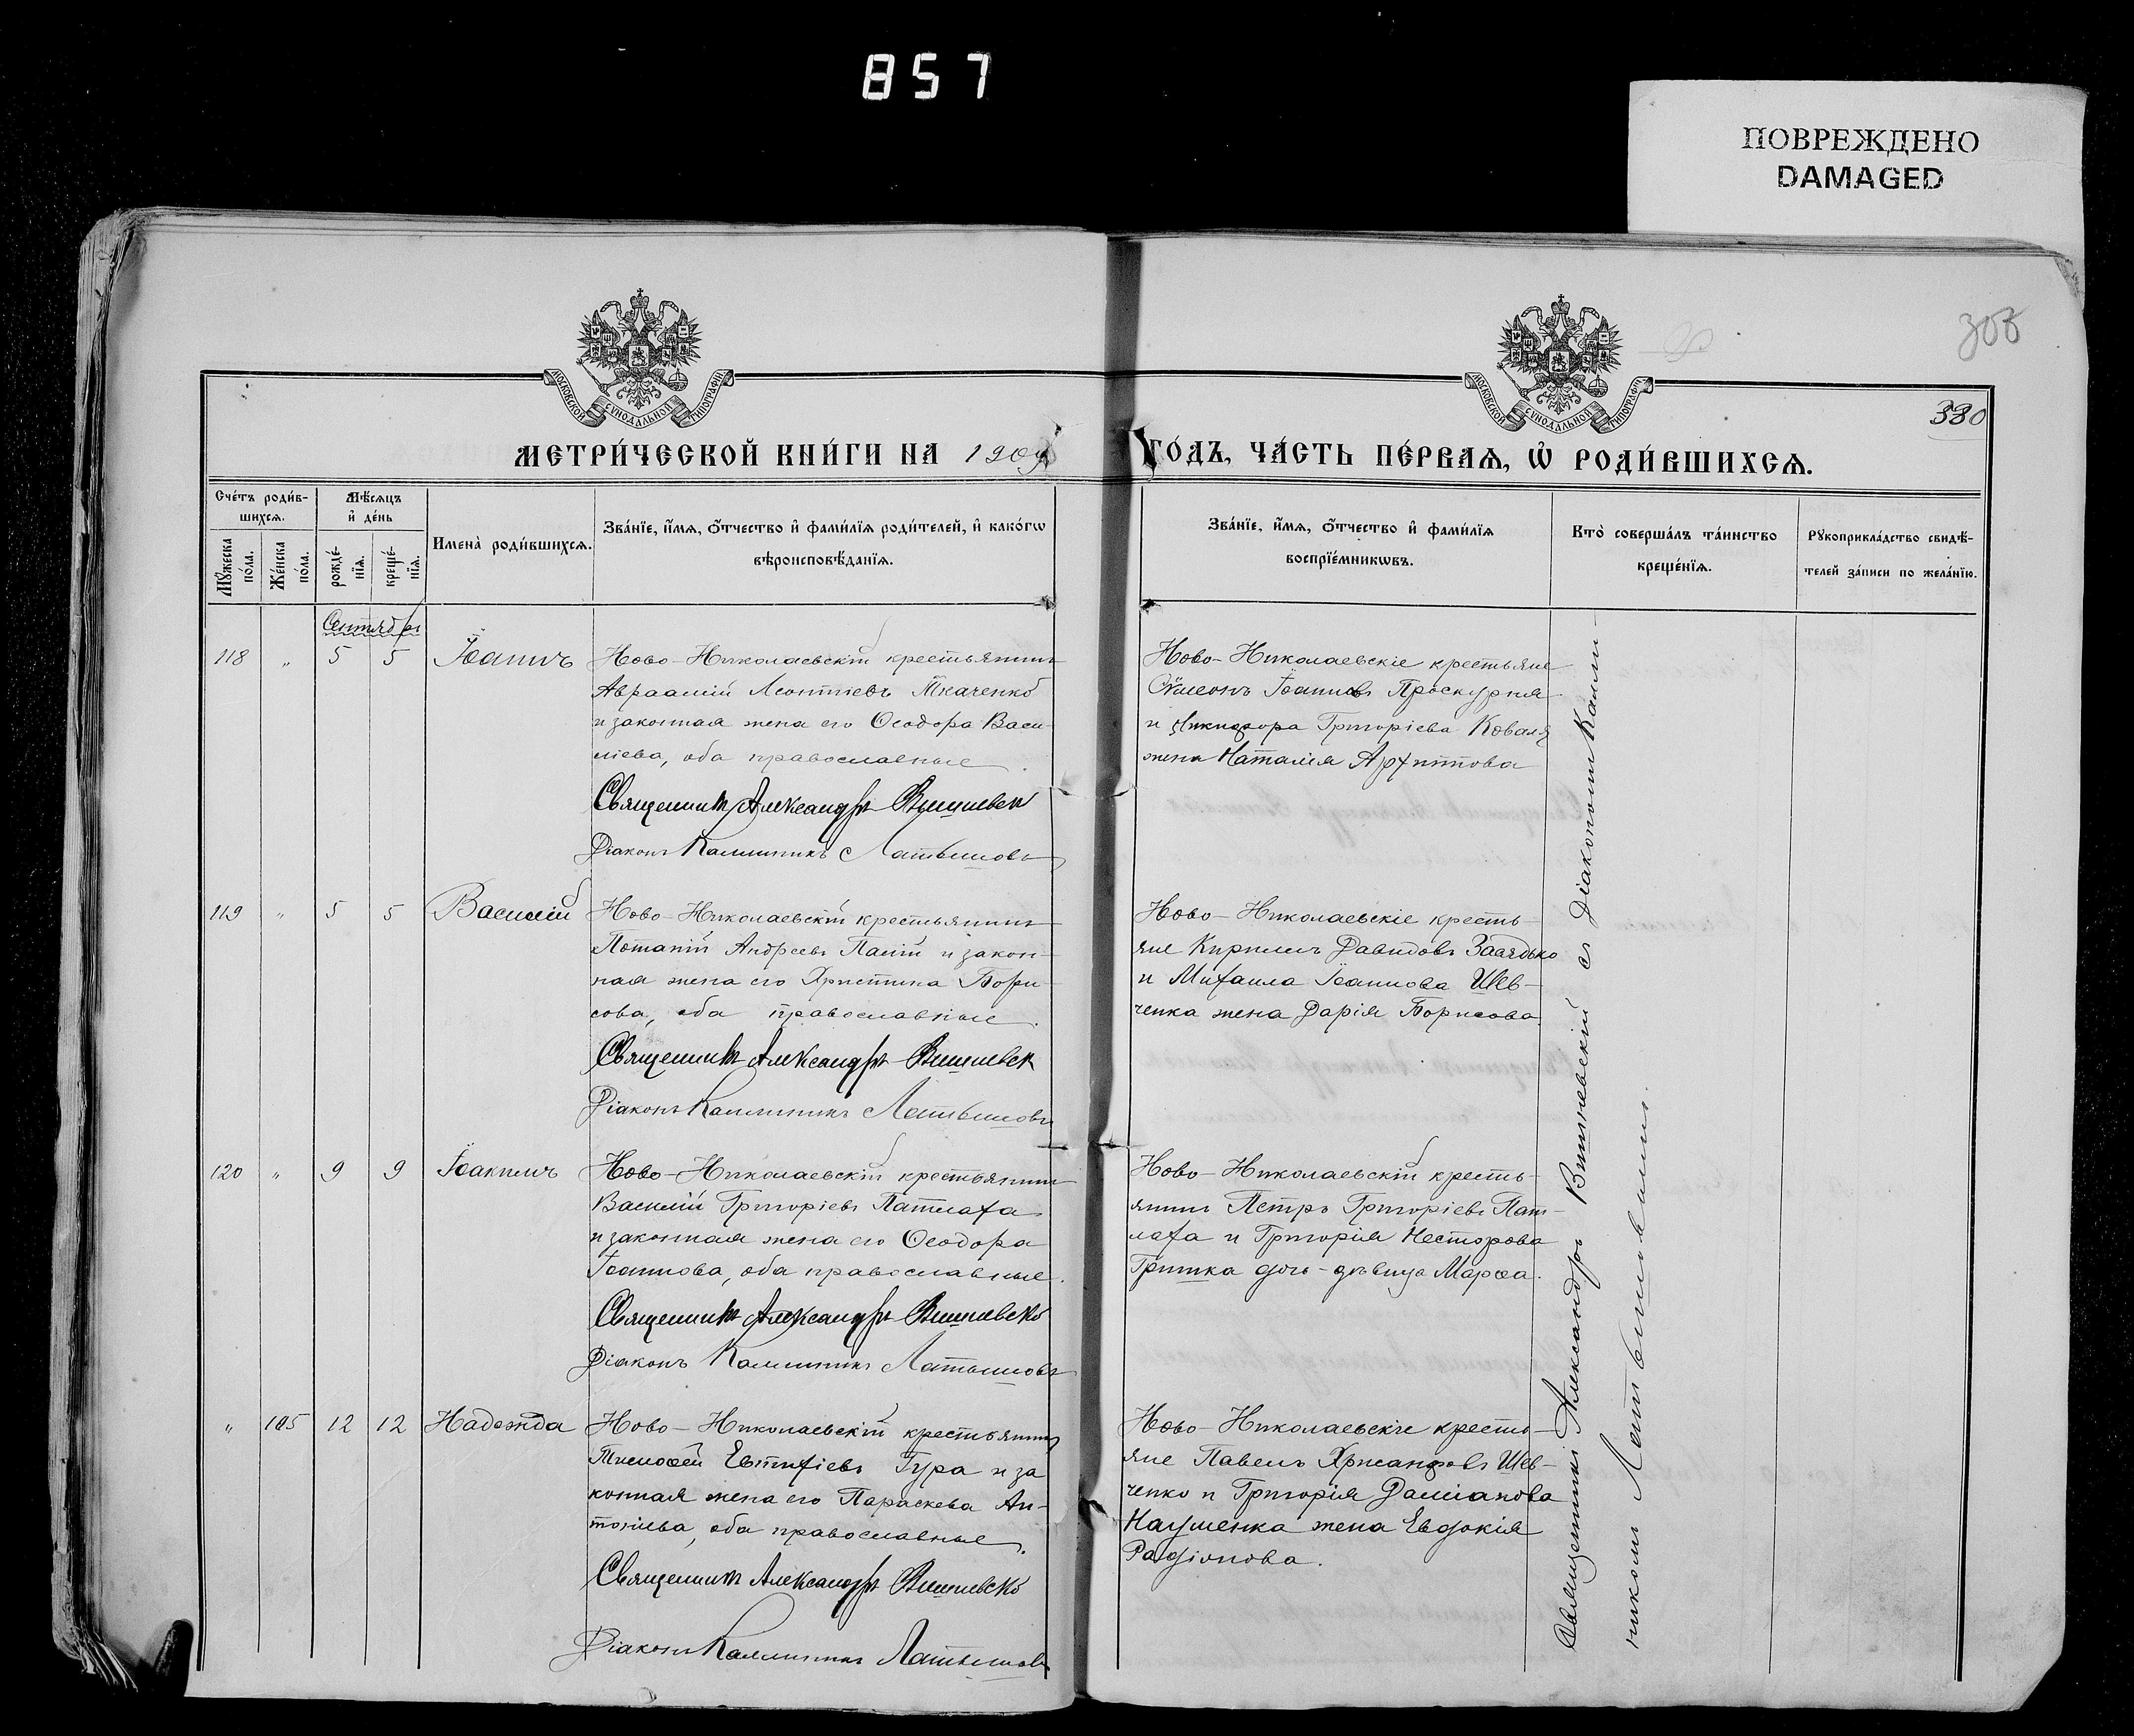 857
ПОВРЕЖДЕНО
DAMAGED
308
330
МОСКОВСКОЙ СѴНОДАЛЬНОЙ ТИПОГРАФІИ
МОСКОВСКОЙ СѴНОДАЛЬНОЙ ТИПОГРАФІИ
МЕТРИ́ЧЕСКОЙ КНИ́ГИ НА 1909
ГО́ДЪ, ЧА́СТЬ ПЕ́РВАѦ, Ѡ҆ РОДИ́ВШИХСѦ.
Сче́тъ роди́в-
шихсѧ.
Мꙋ́жеска по́ла.
Же́нска по́ла.
Мѣ́сѧцъ
и҆ де́нь
рожде́-
нїѧ.
креще́-
нїѧ.
Имена̀ роди́вшихсѧ.
Зва́нїе, и҆́мѧ, ѻ҆́тчество и҆ фами́лїѧ роди́телей, и҆ како́гѡ
вѣроисповѣ́данїѧ.
Зва́нїе, и҆́мѧ, ѻ҆́тчество и҆ фами́лїѧ
воспрїе́мникѡвъ.
Кто̀ соверша́лъ та́инство
креще́нїѧ.
Рꙋкоприкла́дство свидѣ́-
телей за́писи по жела́нїю.
Сентября
118 „ 5 5 Іоаннъ
Ново-Николаевскій крестьянинъ
Авраамій Леонтіевъ Ткаченко
и законная жена его Ѳеодора Васи-
ліева, оба православные.
Священникъ Александръ Вишневск
Діаконъ Каллиникъ Латышовъ
Ново-Николаевскіе крестьяне
Сѵмеонъ Іоанновъ Проскурня
и Никифора Григоріева Коваля
жена Наталія Архиппова
119 „ 5 5 Василій
Ново-Николаевскій крестьянинъ
Потапій Андреевъ Палій и закон-
ная жена его Христина Бори-
сова, оба православные.
Священникъ Александръ Вишневск
Діаконъ Каллиникъ Латышовъ
Ново-Николаевскіе кресть-
яне Кириллъ Давидовъ
и Михаила Іоаннова Шев-
ченка жена Дарія Борисова.
120 „ 9 9 Іоакимъ
Ново-Николаевскій крестьянинъ
Василій Григоріевъ Патлаха
и законная жена его Ѳеодора
Іоаннова, оба православные.
Священникъ Александръ Вишневскій
Діаконъ Каллиникъ Латышовъ
Ново-Николаевскій кресть-
янинъ Петръ Григоріевъ Пат-
лаха и Григорія Несторова
Гритка дочь-дѣвица Марѳа.
„ 105 12 12 Надежда
Ново-Николаевскій крестьянинъ
Тимоѳей Евтихіевъ Гура и за
конная жена его Параскева Ан-
тоніева, оба православные.
Священникъ Александръ Вишневскій
Діаконъ Каллиникъ Латышовъ
Ново-Николаевскіе кресть-
яне Павелъ Хрисанфовъ Шев-
ченко и Григорія Даміанова
Науменка жена Евдокія
Радіонова.
Священникъ Александръ Вишневскій съ Діакономъ Калли-
никомъ Латышовымъ.